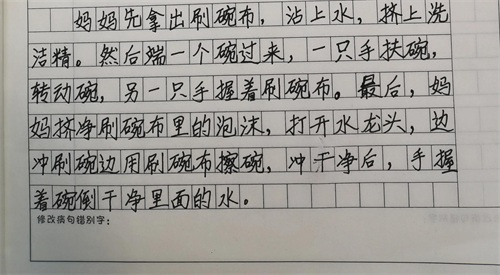 妈妈先拿出刷碗布，沾上水，挤上洗
洁精。然后端一个碗过来，一只手扶碗，
转动碗，另一只手握着刷碗布。最后，妈
妈挤净刷碗布里的泡沫，打开水龙头，边
冲刷碗边用刷碗布擦碗，冲干净后，手握
着碗倒干净里面的水。
修改病句错别字：